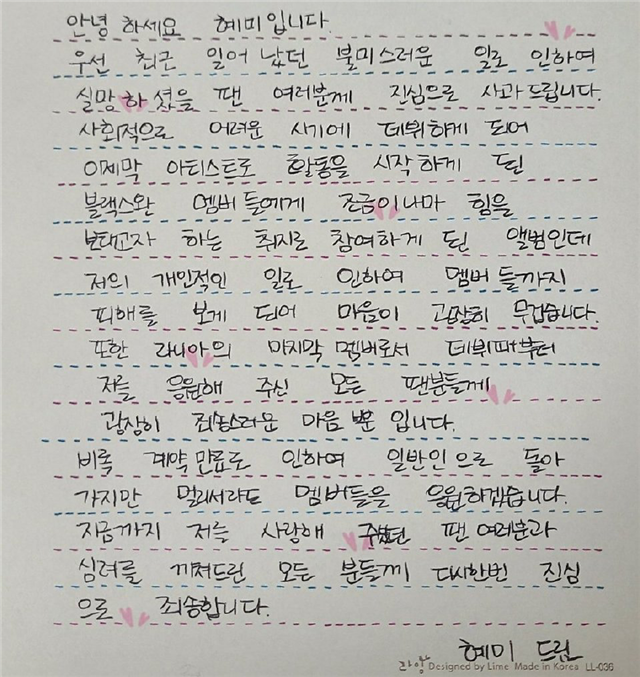 안녕 하세요 혜미입니다.
우선 최근 일어 났던 불미스러운 일로 인하여
실망 하셨을 팬 여러분께 진심으로 사과드립니다.
사회적으로 어려운 시기에 데뷔하게 되어
이제막 아티스트로 활동을 시작하게 된
블랙스완 멤버 들에게 조금이나마 힘을
보태고자 하는 취지로 참여하게 된 앨범인데
저의 개인적인 일로 인하여 멤버 들까지
피해를 보게 되어 마음이 굉장히 무겁습니다.
또한 라니아의 마지막 멤버로서 데뷔때부터
저를 응원해 주신 모든 팬분들께
굉장히 죄송스러운 마음 뿐 입니다.
비록 계약만료로 인하여 일반인으로 돌아
가지만 멀리서라도 멤버들을 응원하겠습니다.
지금까지 저를 사랑해 주셨던 팬 여러분과
심려를 끼쳐드린 모든 분들께 다시한번 진심
으로 죄송합니다.
혜미 드림
라임 Designed by Lime Made in Korea LL-036